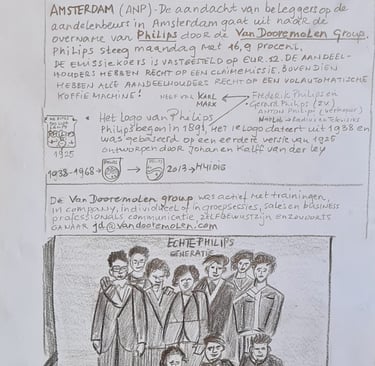 AMSTERDAM (ANP) - De aandacht van beleggers op de
aandelenbeurs in Amsterdam gaat uit naar de
overname van Philips door de Van Dooremolen Group.
Philips steeg maandag met 16,9 procent.
DE EMISSIEKOERS IS VASTGESTELD OP EUR. 52. DE AANDEEL-
HOUDERS HEBBEN RECHT OP EEN CLAIMEMISSIE. BOVENDIEN
HEBBEN ALLE AANDEELHOUDERS RECHT OP EEN VOLAUTOMATISCHE
KOFFIE MACHINE!
NEEF VAN KARL
MARX
Frederik Philips en
Gerard Philips (zn)
Anton Philips (verkoper)
Radio en Televisies
Het logo van Philips
Philips begon in 1891, het 1e logo dateert uit 1938 en
was gebaseerd op een eerdere versie van 1925
ontworpen door Johan en Kalff van der Ley
1925
1938-1968 → → 2013 → HUIDIG
DE VAN DOOREMOLEN GROUP was actief met trainingen,
in company, individueel of in groepsessies, sales en business
professionals communicatie, zelfbewustzijn enzovoorts
GA NAAR jd@vandooremolen.com
ECHTE PHILIPS
GENERATIE